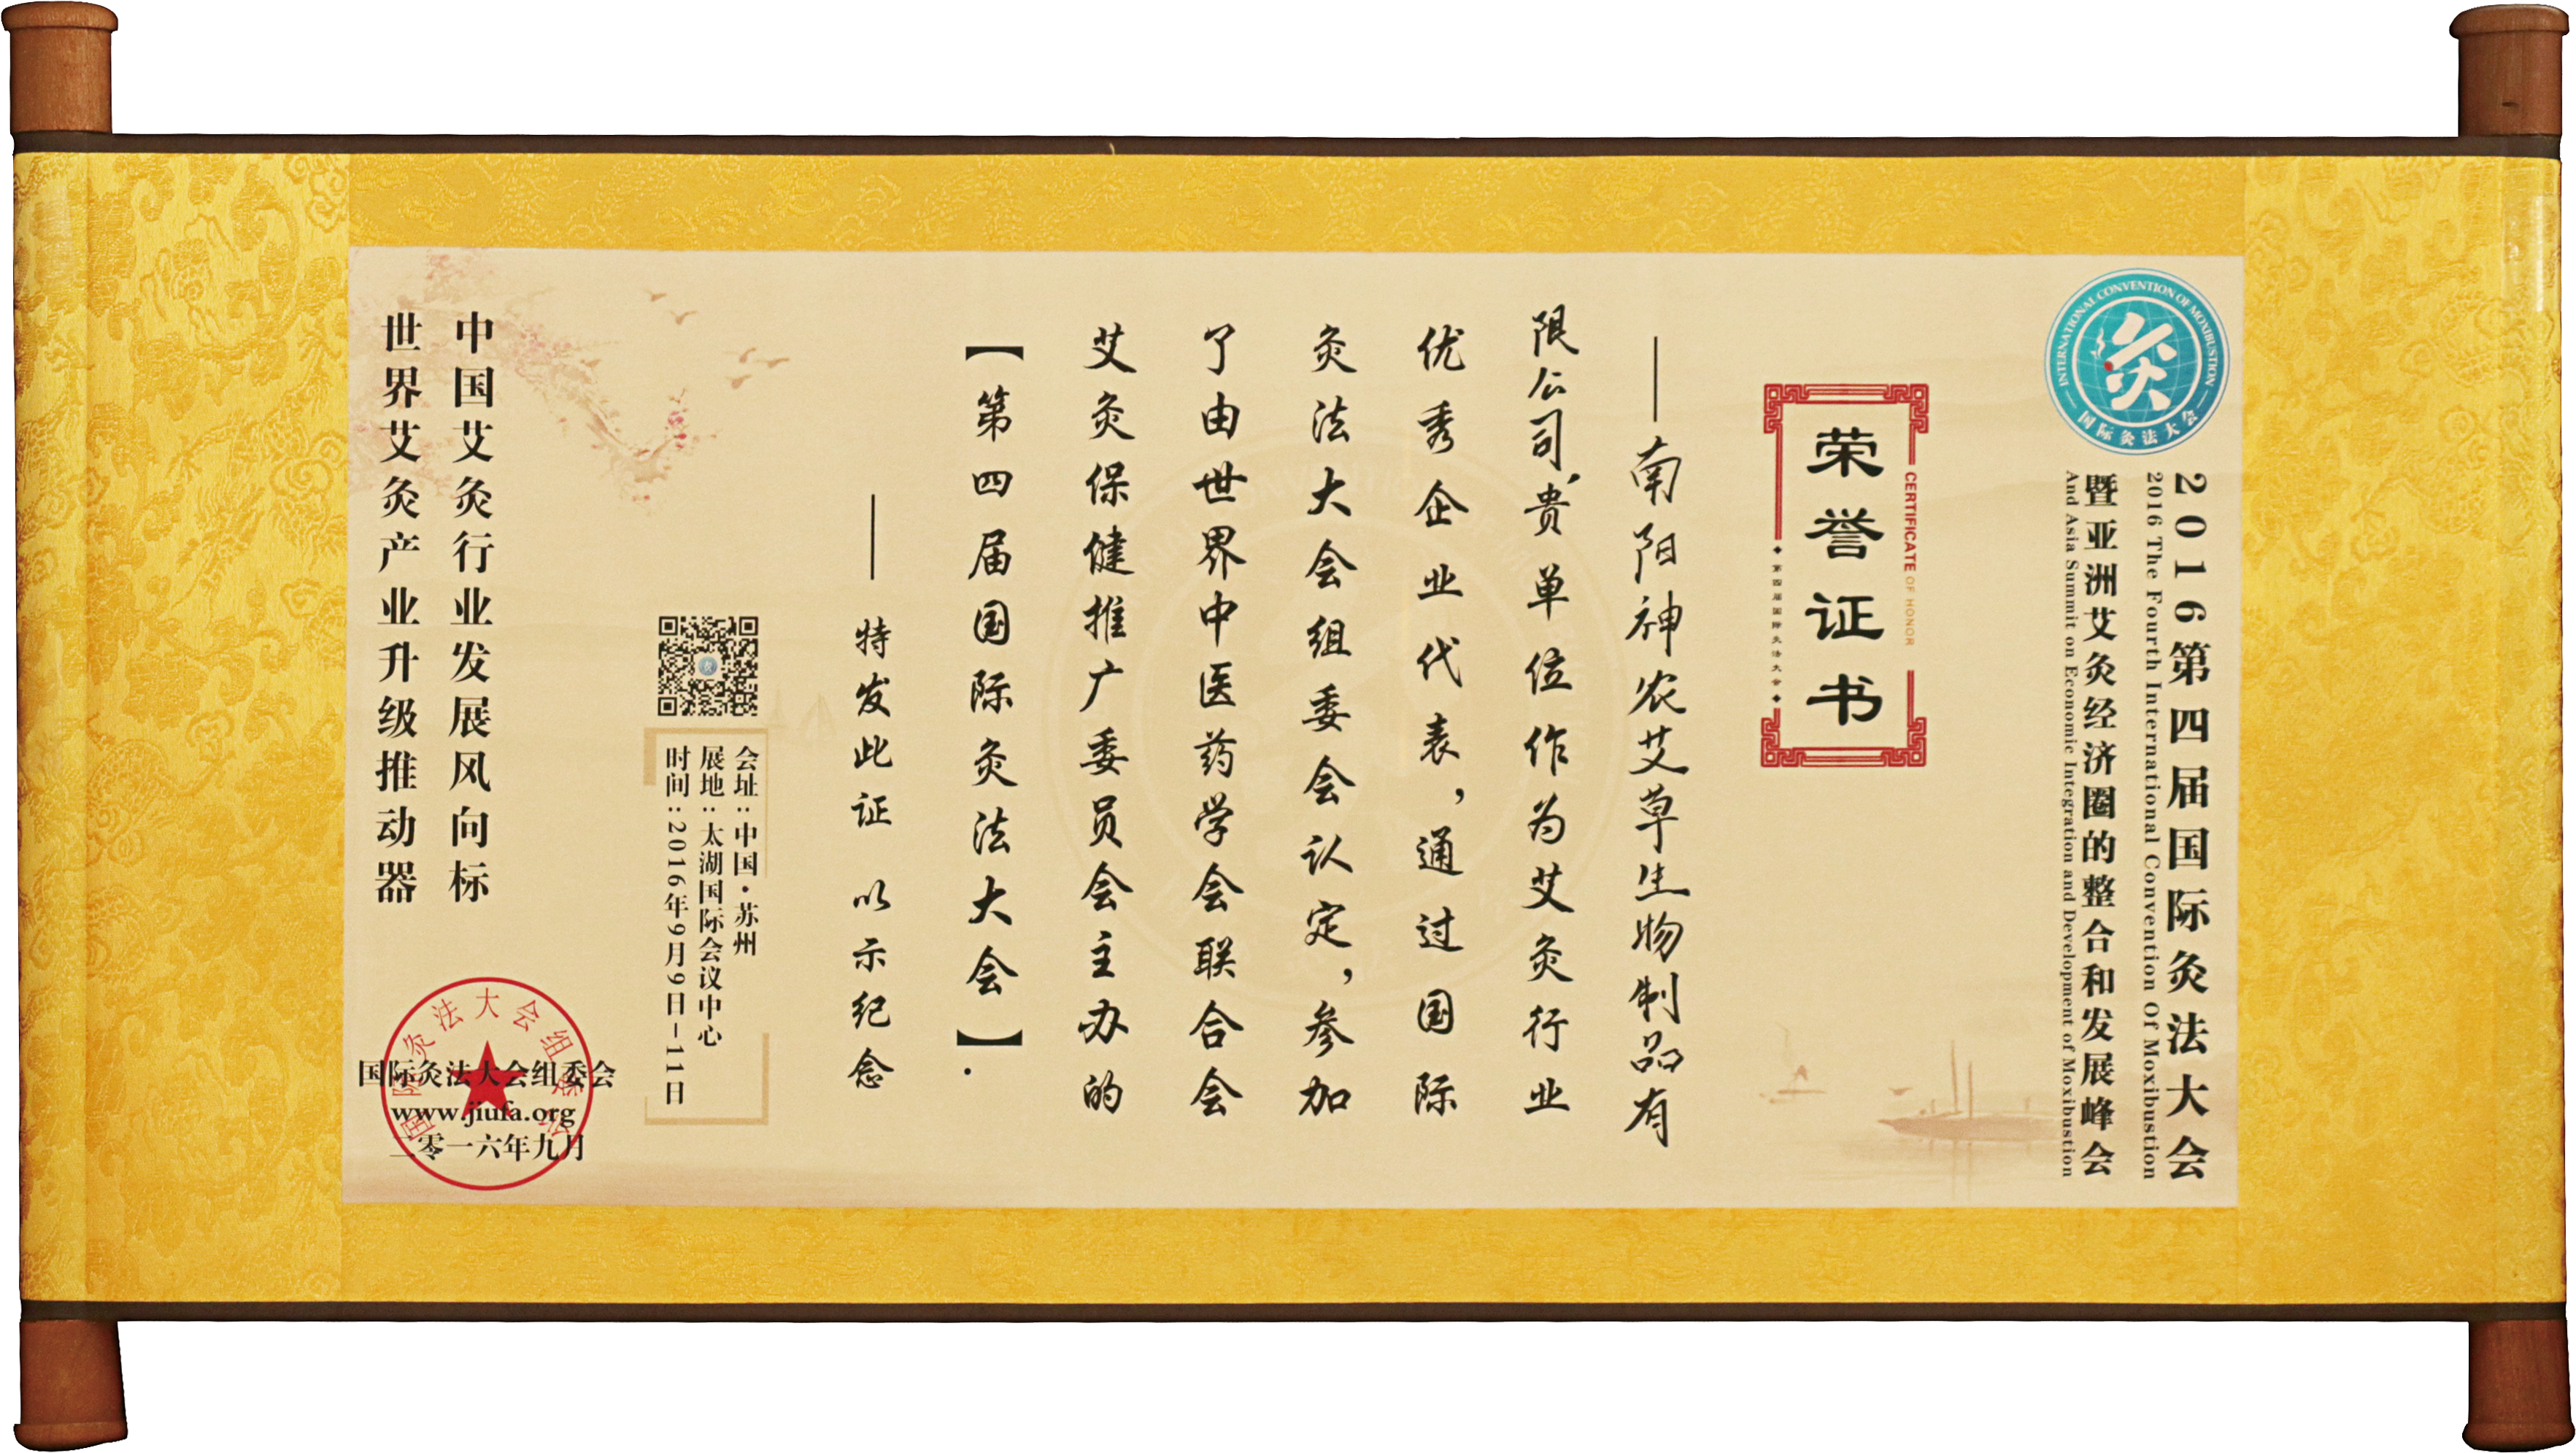 INTERNATIONAL CONVENTION OF MOXIBUSTION
灸
国际灸法大会
2016第四届国际灸法大会
2016 The Fourth International Convention Of Moxibustion
暨亚洲艾灸经济圈的整合和发展峰会
And Asia Summit on Economic Integration and Development of Moxibustion
CERTIFICATE OF HONOR
荣誉证书
第四届国际灸法大会
——南阳神农艾草生物制品有
限公司,贵单位作为艾灸行业
优秀企业代表,通过国际
灸法大会组委会认定,参加
了由世界中医药学会联合会
艾灸保健推广委员会主办的
【第四届国际灸法大会】.
——特发此证 以示纪念
会址:中国·苏州
展地:太湖国际会议中心
时间:2016年9月9日-11日
中国艾灸行业发展风向标
世界艾灸产业升级推动器
国际灸法大会组委会
国际灸法大会组委会
www.jiufa.org
二零一六年九月